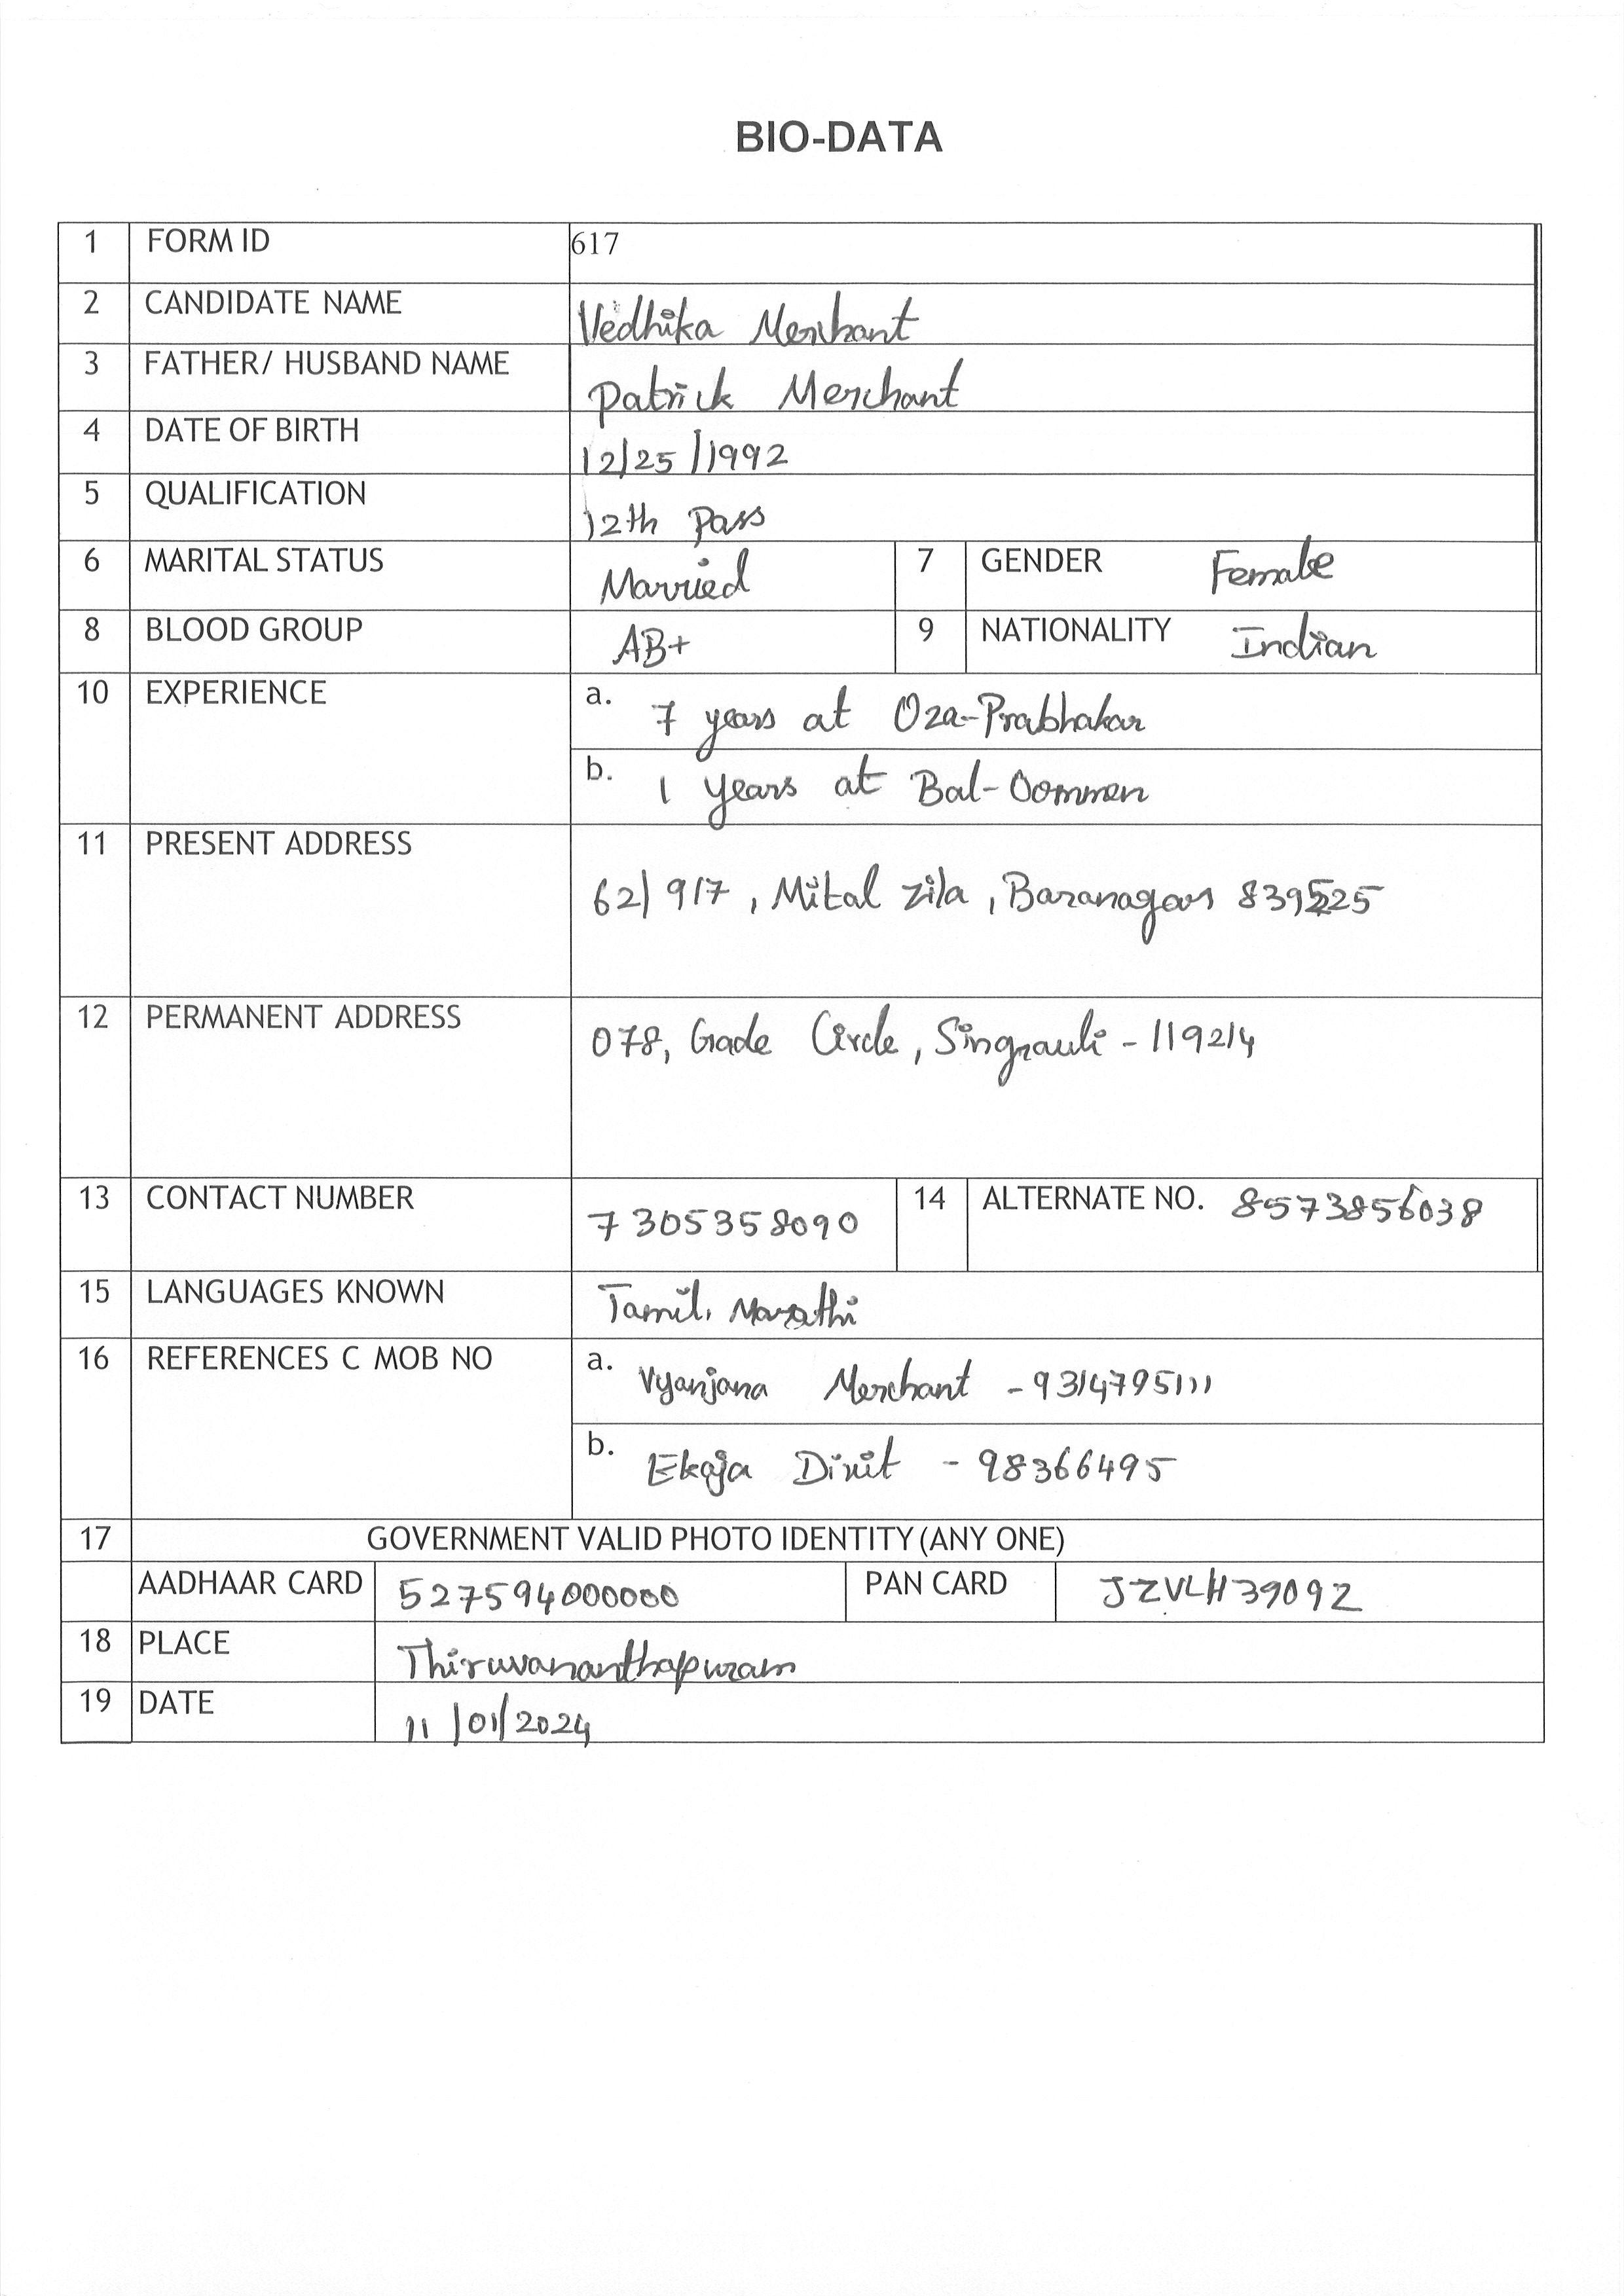 BIO-DATA
1 FORM ID 617
2 CANDIDATE NAME Vedhika Merchant
3 FATHER/ HUSBAND NAME Patrick Merchant
4 DATE OF BIRTH 12/25/1992
5 QUALIFICATION 12th Pass
6 MARITAL STATUS Married 7 GENDER Female
8 BLOOD GROUP AB+ 9 NATIONALITY Indian
10 EXPERIENCE a. 7 years at Oza-Prabhakar
b. 1 years at Bal-Oommen
11 PRESENT ADDRESS
62/917, Mital Zila, Baranagar 839525
12 PERMANENT ADDRESS 078, Gade Circle, Singrauli - 119214
13 CONTACT NUMBER 7305358090 14 ALTERNATE NO. 8573856038
15 LANGUAGES KNOWN Tamil, Marathi
16 REFERENCES C MOB NO a. Vyanjana Merchant - 9314795111
b. Ekaja Dixit - 98366495
17 GOVERNMENT VALID PHOTO IDENTITY (ANY ONE)
AADHAAR CARD 527594000000 PAN CARD JZVLH3909Z
18 PLACE Thiruvananthapuram
19 DATE 11/01/2024